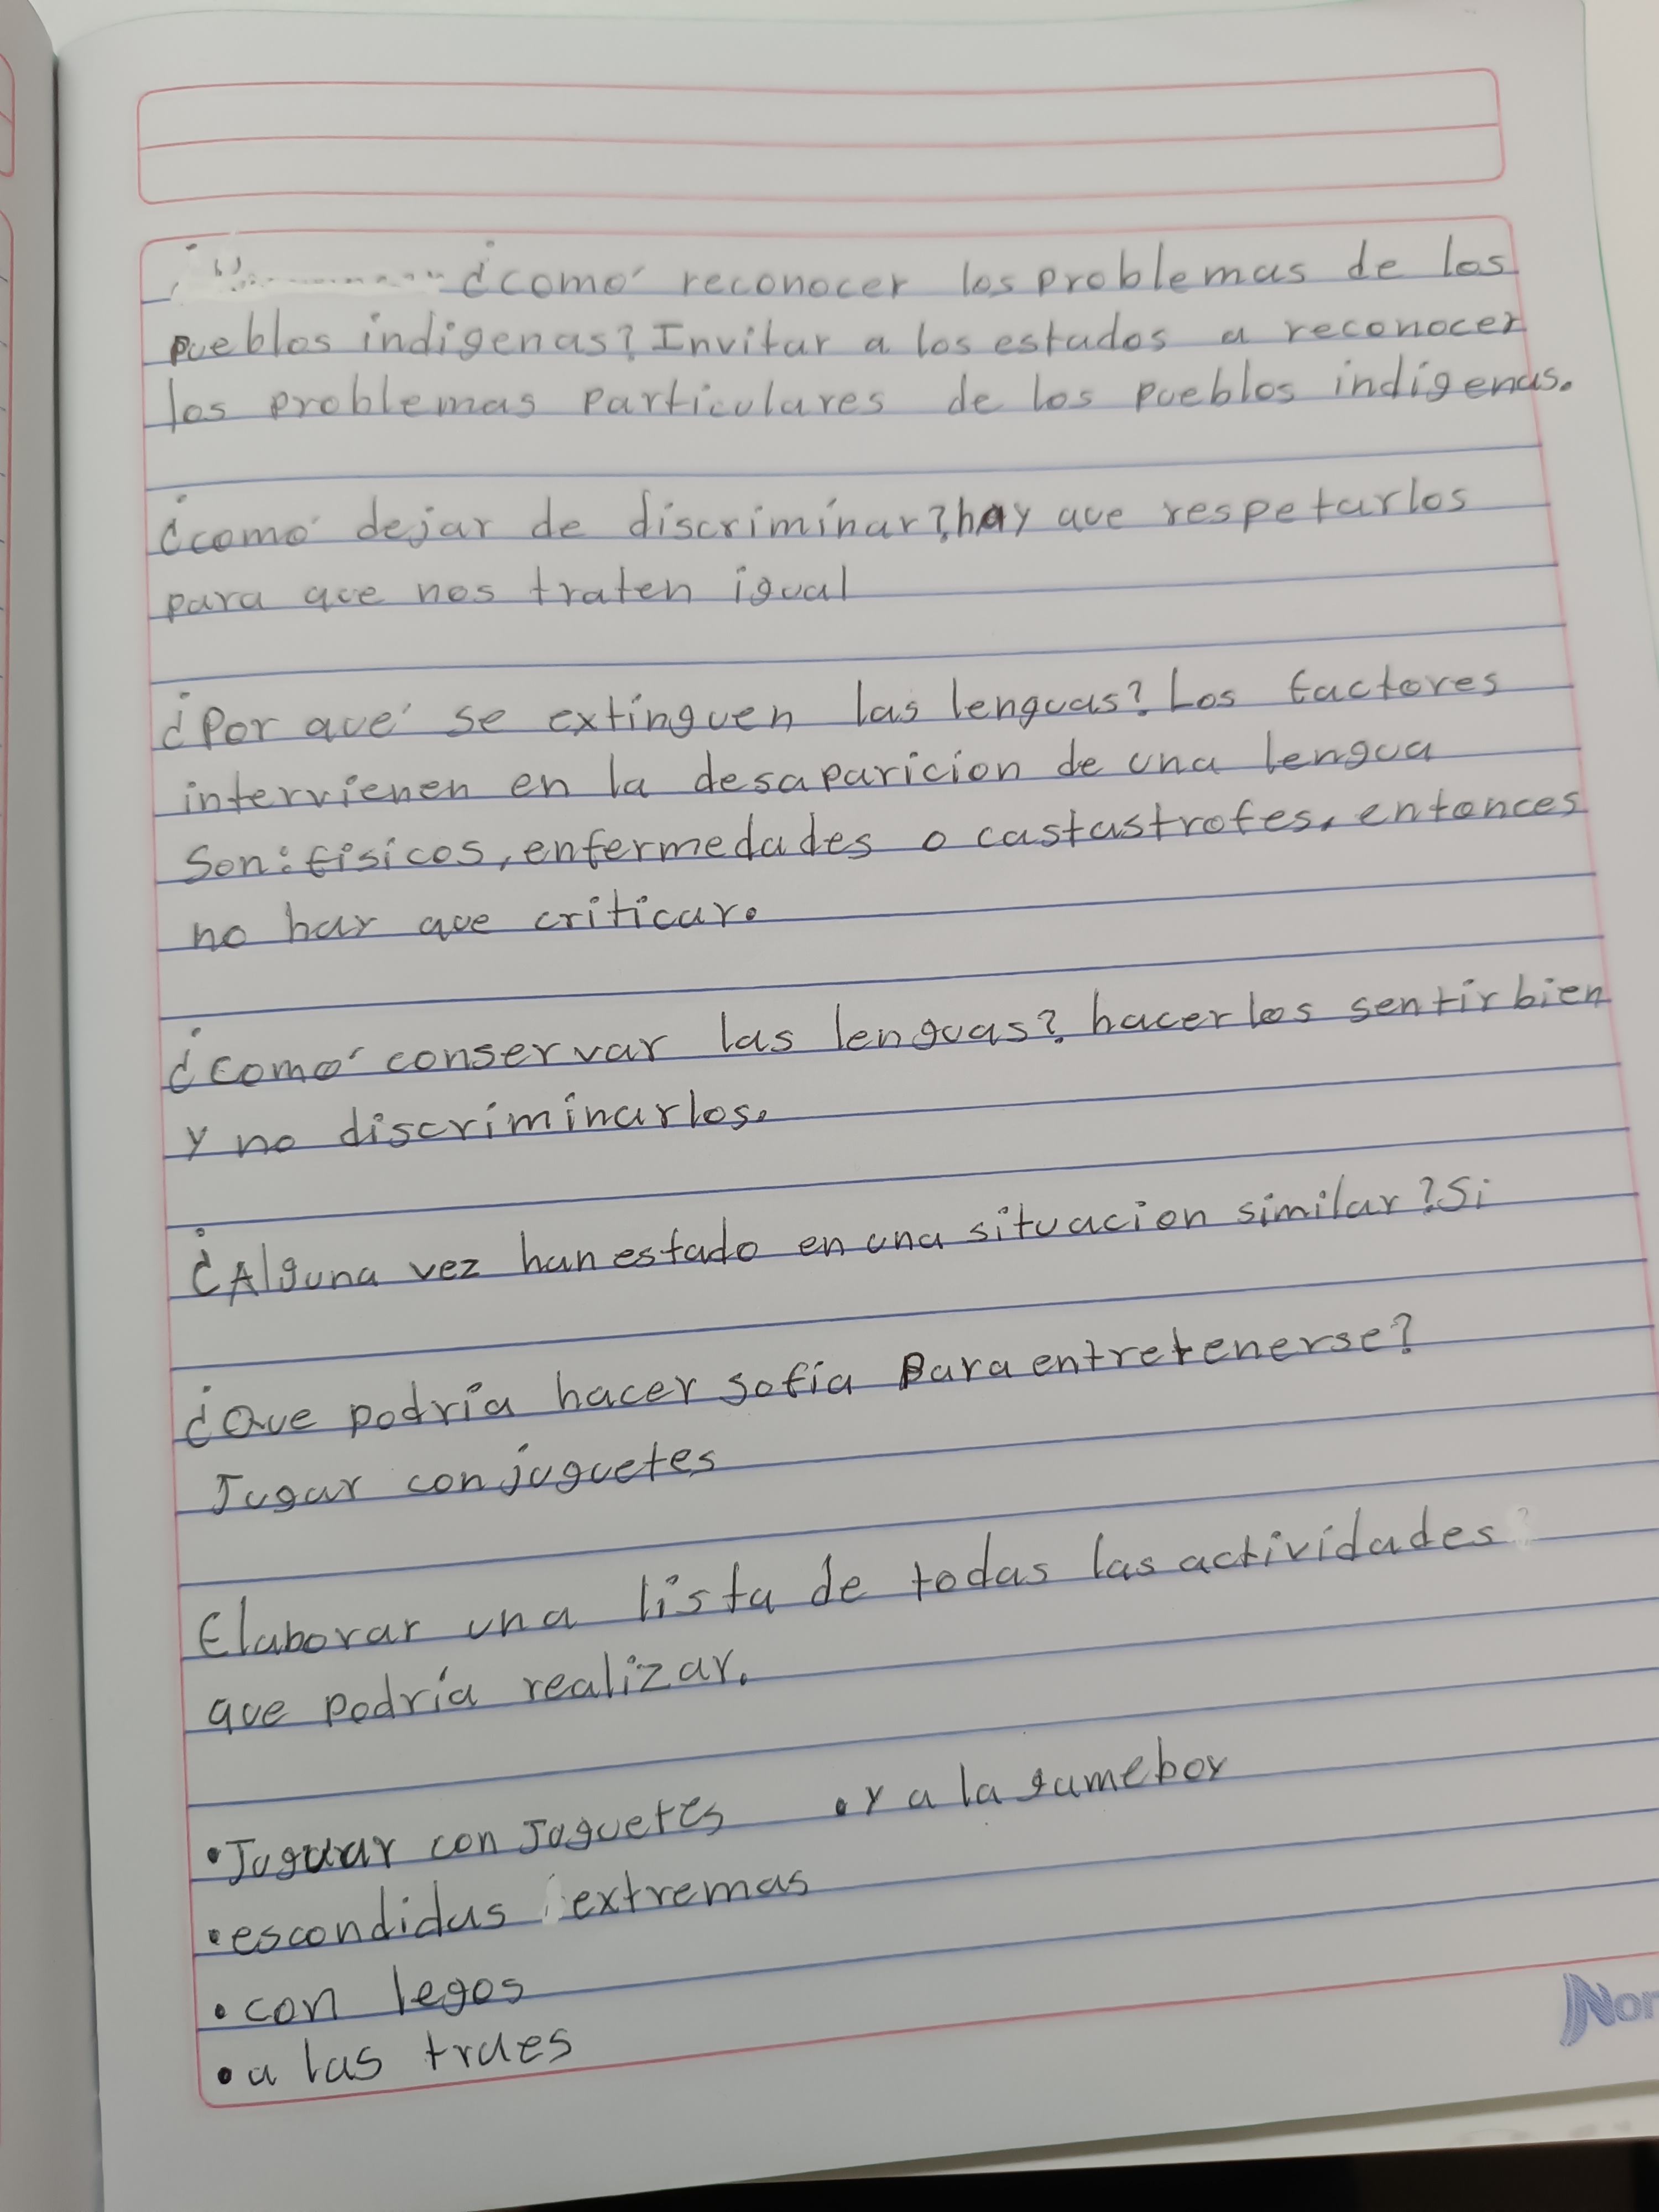 ¿como´ reconocer los problemas de los
pueblos indigenas? Invitar a los estados a reconocer
los problemas particulares de los pueblos indigenas.
¿como´ dejar de discriminar? hay que respetarlos
para que nos traten igual
¿Por que´ se extinguen las lenguas? Los factores
intervienen en la desaparicion de una lengua
son: fisicos, enfermedades o castastrofes, entonces
no hay que criticar.
¿como´ conservar las lenguas? hacerlos sentir bien
y no discriminarlos.
¿Alguna vez han estado en una situacion similar? Si
¿Que podría hacer sofia para entretenerse?
Jugar con juguetes
Elaborar una lista de todas las actividades
que podría realizar.
•Juguar con Juguetes •y a la gameboy
•escondidas extremas
•con legos
•a las traes
Nor